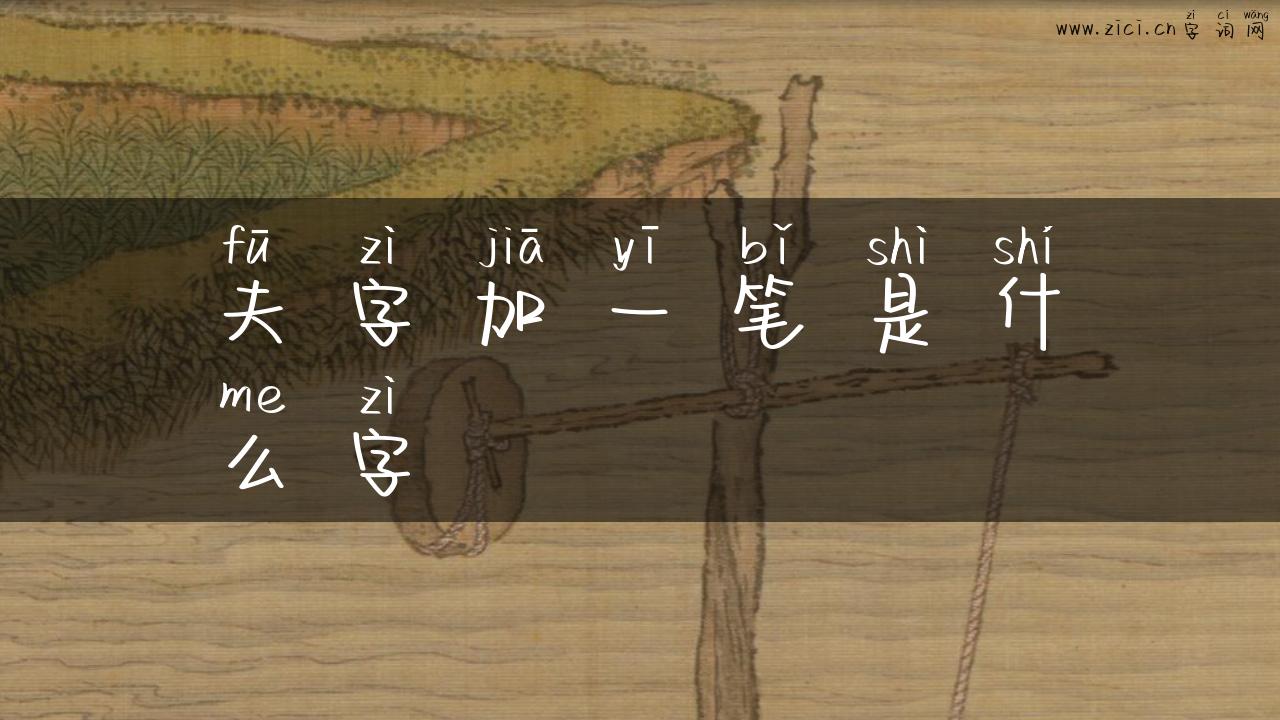 zì cí wǎng
www.zici.cn字词网
fū zì jiā yī bǐ shì shí
夫字加一笔是什
me zì
么字